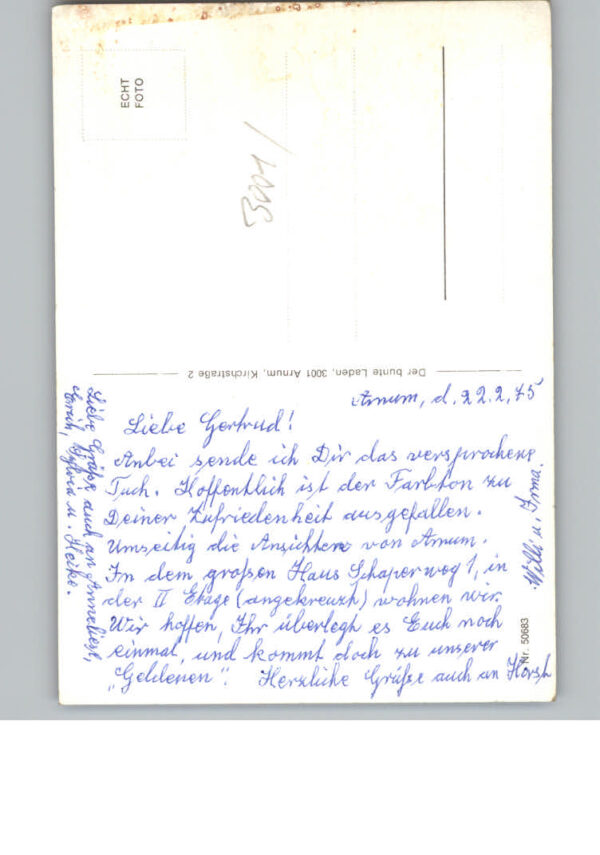 ECHT
FOTO
3001/
Der bunte Laden, 3001 Arnum, Kirchstraße 2
Arnum, d. 22.2.75
Liebe Gertrud!
Anbei sende ich Dir das versprochene
Tuch. Hoffentlich ist der Farbton zu
Deiner Zufriedenheit ausgefallen.
Umseitig die Ansichten von Arnum.
In dem großen Haus Schaperweg 1, in
der II Etage (angekreuzt) wohnen wir.
Wir hoffen, Ihr überlegt es Euch noch
einmal, und kommt doch zu unserer
"Goldenen". Herzliche Grüße auch an Horst
Willi u. Irma.
Liebe Grüße auch an Anneliese,
Erich, Sylvia u. Heike.
Nr. 50683